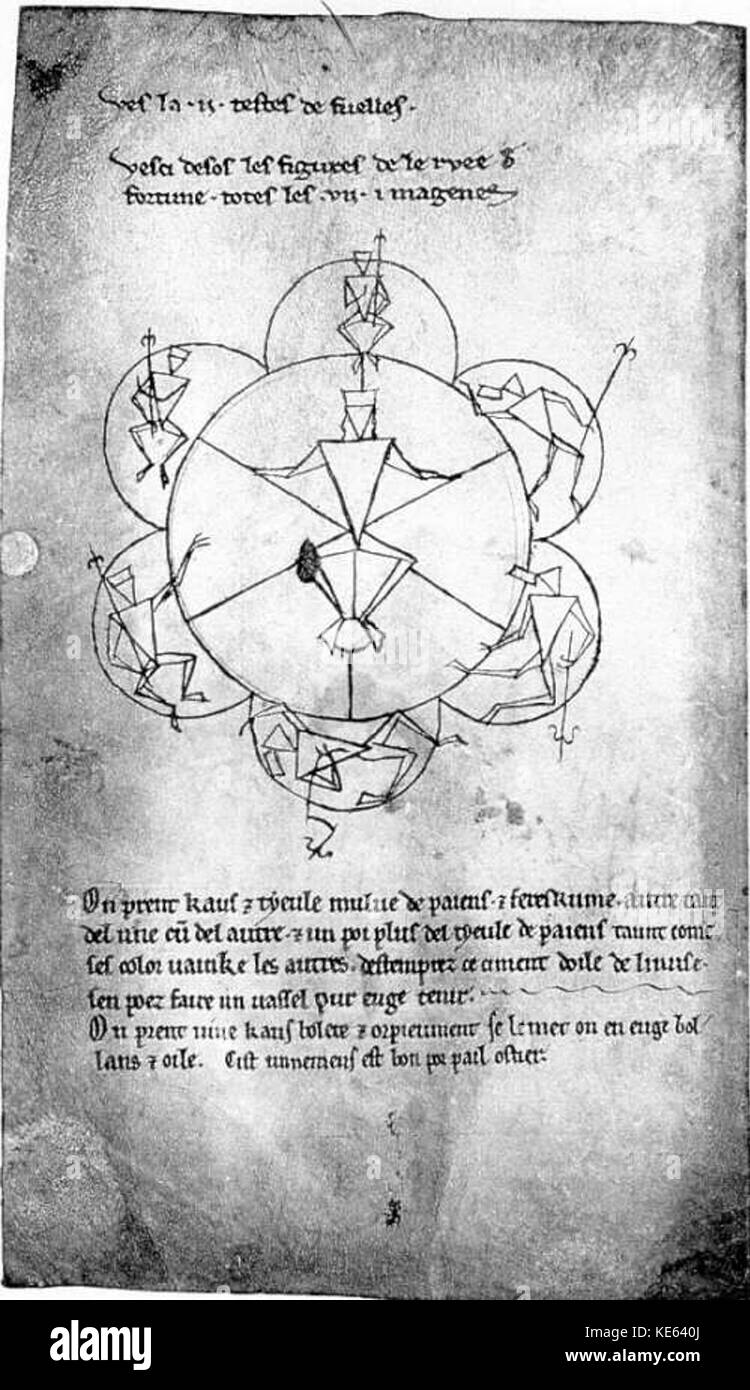 ves la · ii · testes de fuelles ·
vesci desos les figures de le ruee d
fortune · totes les · vii · imagenes
On prent kaus ⁊ tyeule mulue de paiens · ⁊
del une cū del autre · ⁊ un poi plus del tyeule de paiens taunt
ses color vainke les autres · destemprez ce ciment doile de linuse ·
sen poez faire un vassel pur euge tenir ·
On prent vive kaus bolete ⁊ orpieument se le met on en euge bol
lans ⁊ oile · Cist unnemens est bon por pail oster ·
alamy
Image ID: KE640J
www.alamy.com